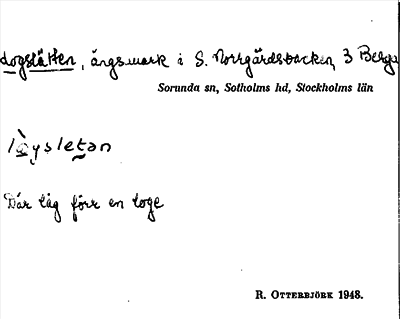 Logslätten, ängsmark i S. Norrgårdsbacken, 3 Berga
Sorunda sn, Sotholms hd, Stockholms län
Där låg förr en loge
R. OTTERBJÖRK 1948.